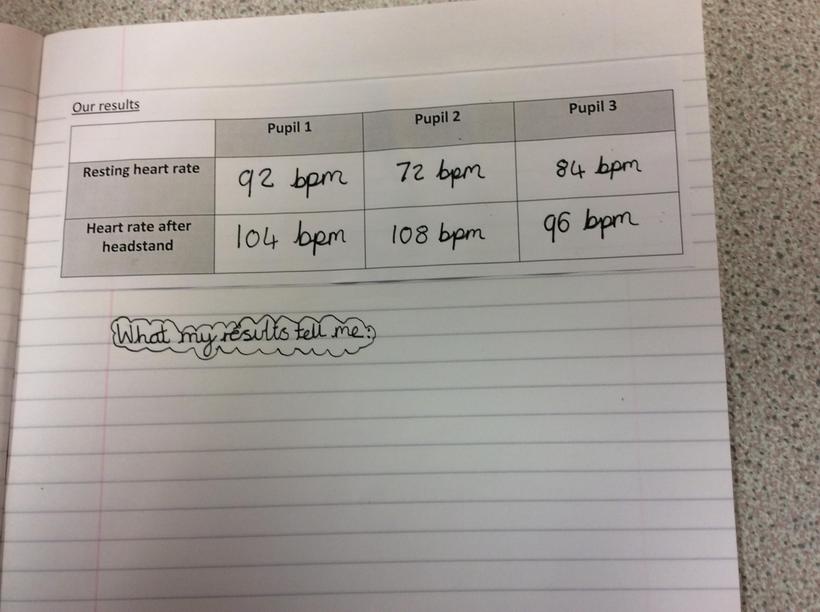 Our results
Pupil 1 Pupil 2 Pupil 3
Resting heart rate 92 bpm 72 bpm 84 bpm
Heart rate after
headstand 104 bpm 108 bpm 96 bpm
What my results tell me: